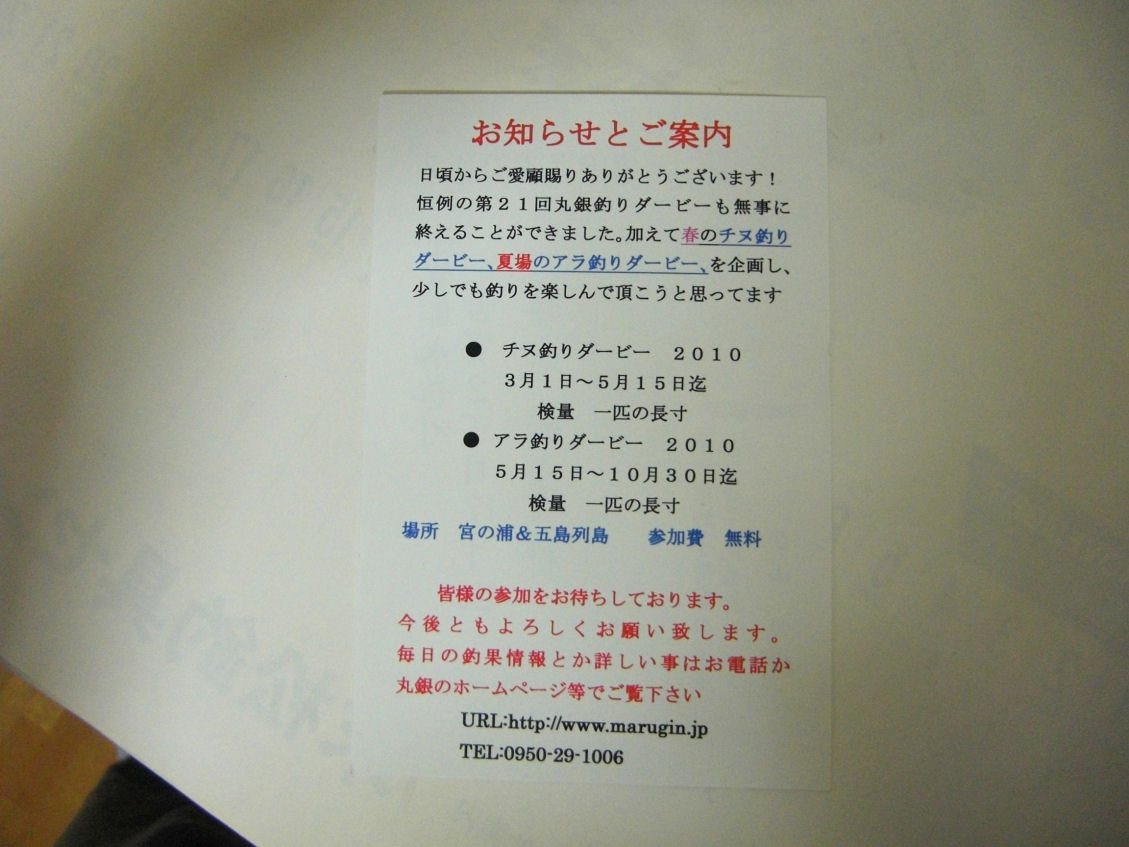 お知らせとご案内
日頃からご愛顧賜りありがとうございます！
恒例の第２１回丸銀釣りダービーも無事に
終えることができました。加えて春のチヌ釣り
ダービー、夏場のアラ釣りダービー、を企画し、
少しでも釣りを楽しんで頂こうと思ってます
●　チヌ釣りダービー　２０１０
３月１日～５月１５日迄
検量　一匹の長寸
●　アラ釣りダービー　２０１０
５月１５日～１０月３０日迄
検量　一匹の長寸
場所　宮の浦＆五島列島　　参加費　無料
皆様の参加をお待ちしております。
今後ともよろしくお願い致します。
毎日の釣果情報とか詳しい事はお電話か
丸銀のホームページ等でご覧下さい
URL:http://www.marugin.jp
TEL:0950-29-1006